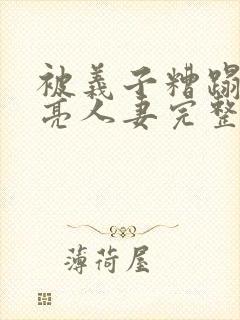 被義子糟蹋
亮人妻完整
薄荷屋